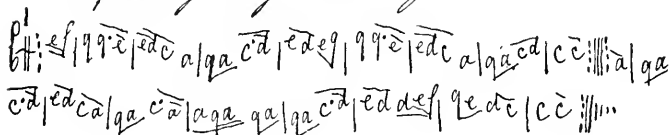 ef | gg·e | edc a | ga c·d | edeg | gg·e | edc a | ga cd | c c a | ga
c·d | ed ca | ga c·a | aga ga | ga c·d | ed def | ge dc | c c